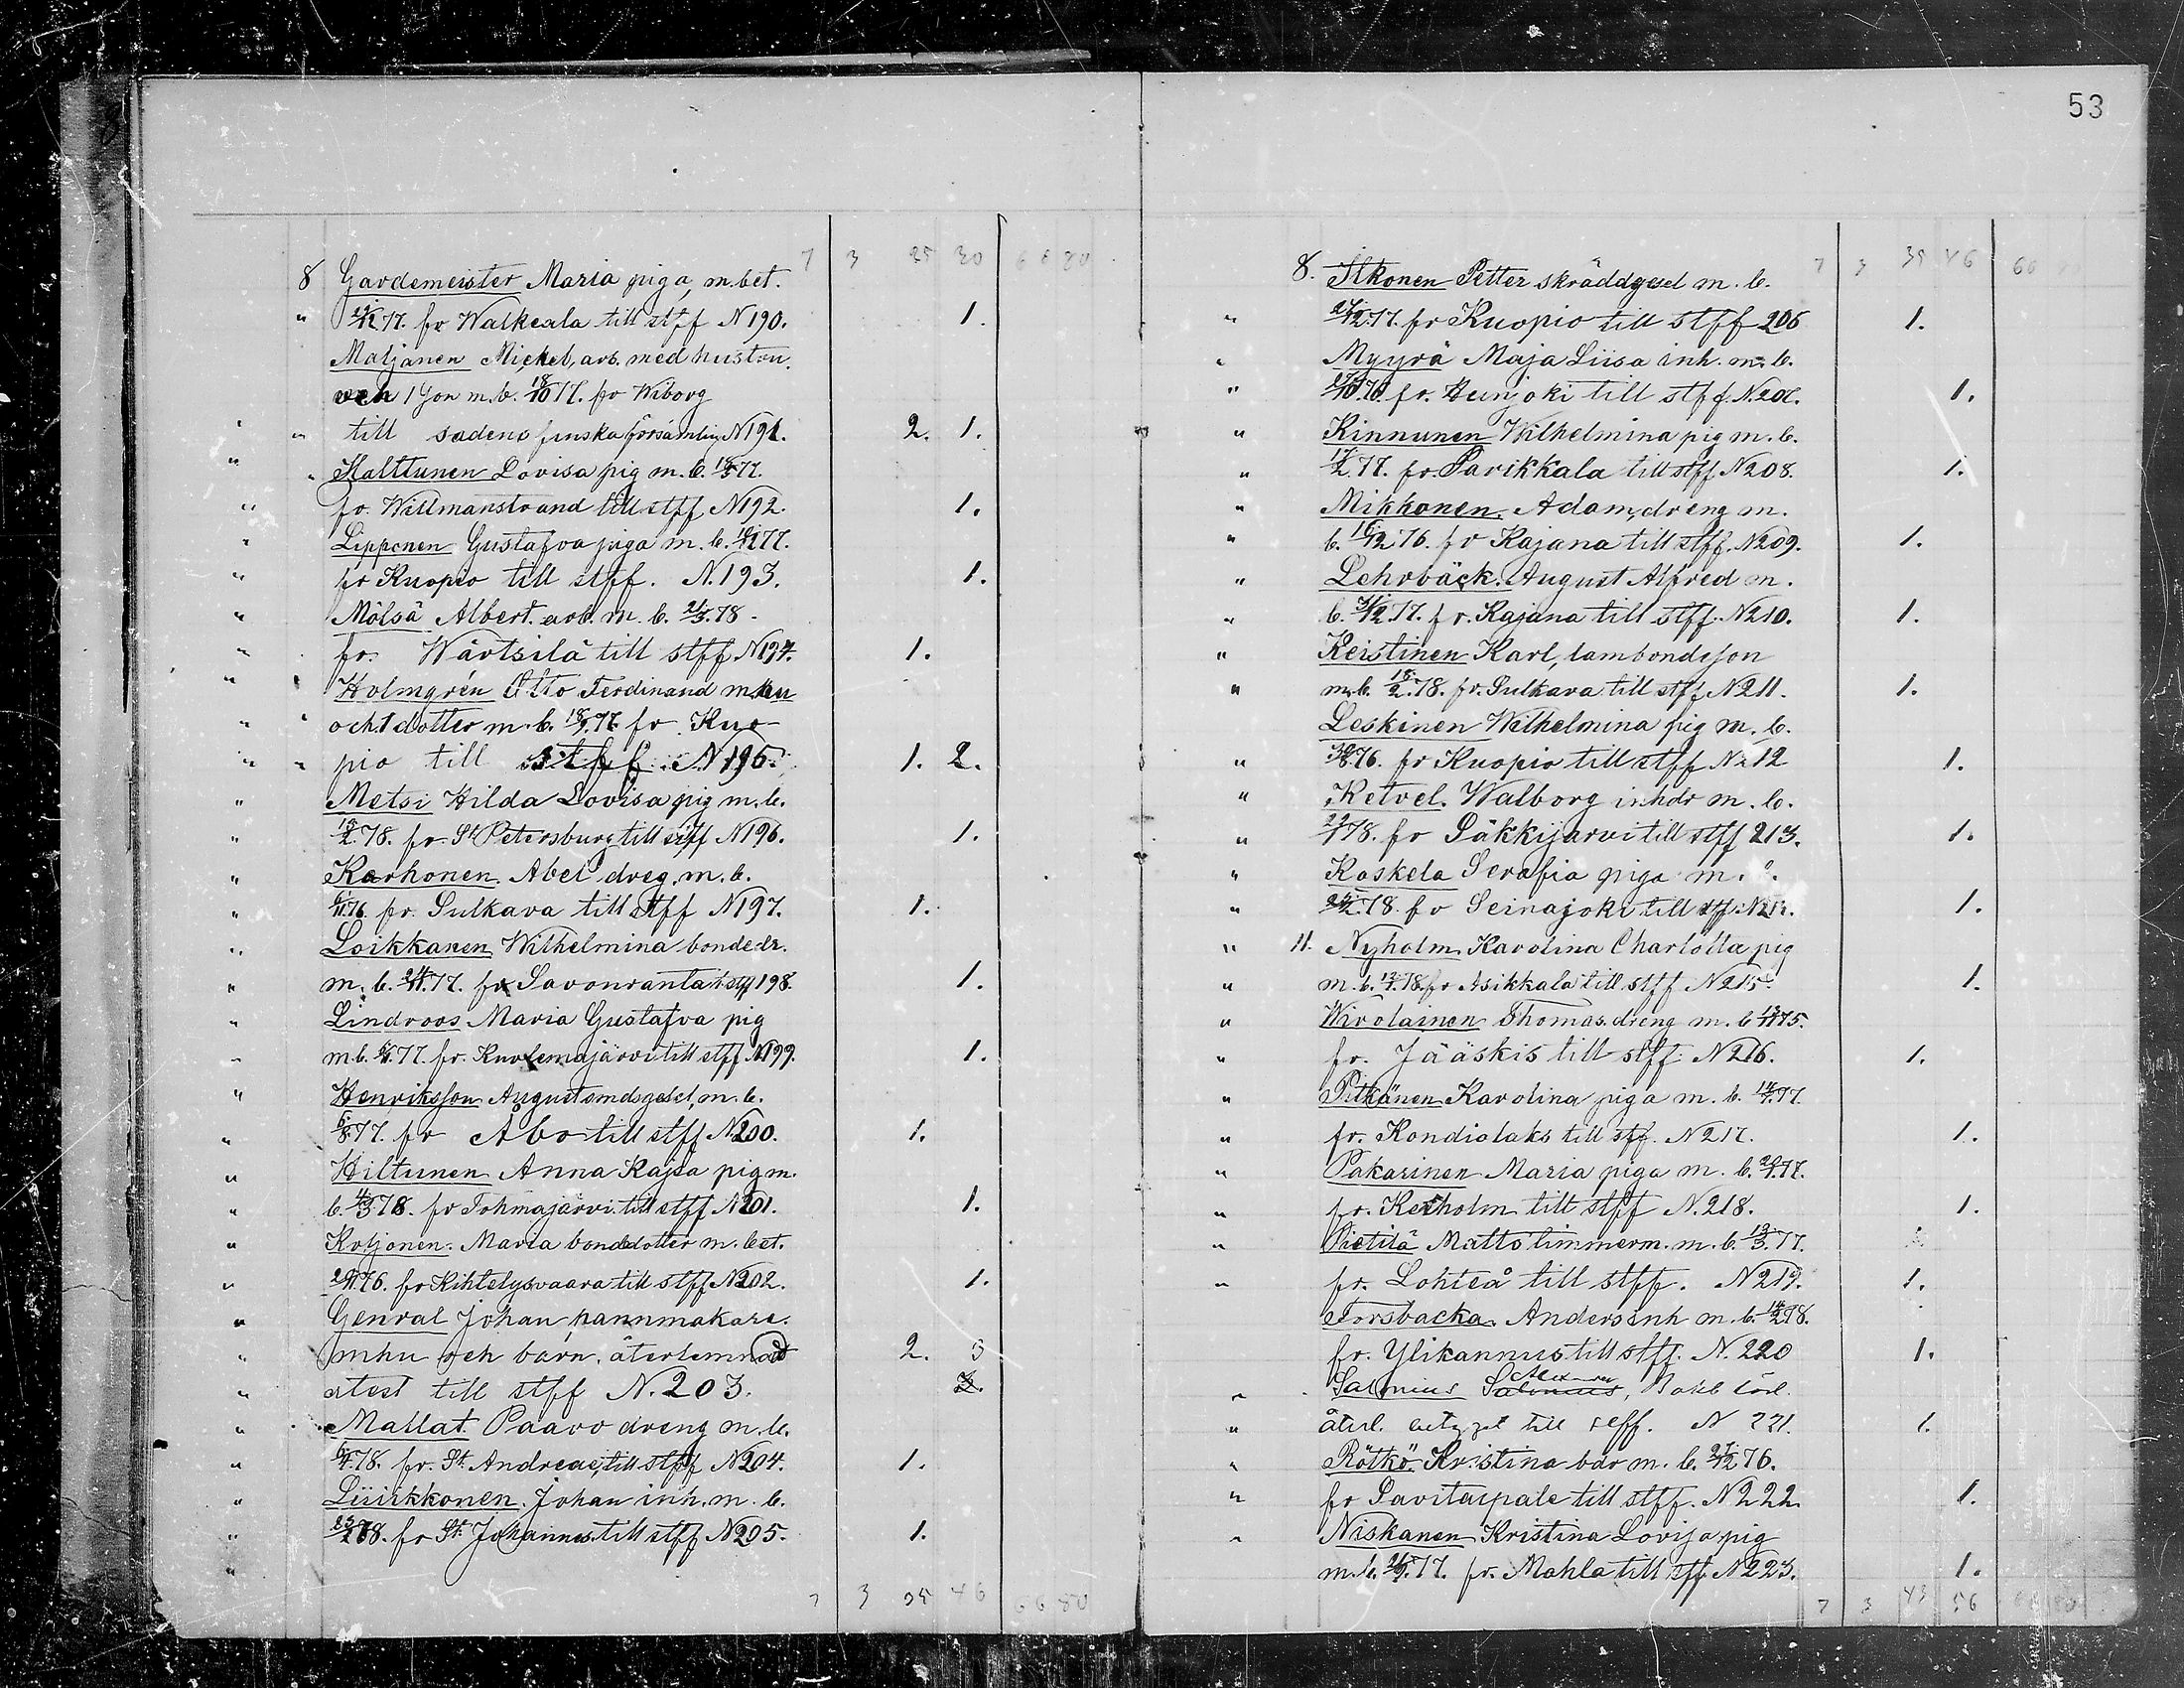 53
7 3 25 30 66 80
8 Gardemeister Maria piga, m. bet.
" 77. fr Walkeala till stff N 190. 1.
Matjanen Mickel, arb. med hustru
och 1 Son m. b. 18/10 77. fr Wiborg
" " till sadens finska församling N 191. 2. 1.
" " Halttunen Lovisa pig m. b. 77.
" fr. Willmanstrand till stff N 192. 1.
" Lipponen Gustafva piga m. b. 77.
" fr Kuopio till stff. N. 193. 1.
" Mölsä Albert. arb. m. b. 78.
" fr. Wärtsilä till stff N 194. 1.
" Holmgrén Otto Ferdinand m hu
" " och 1 dotter m. b. 77. fr. Kuo-
" " pio till stff. N 195. 1. 2.
" Metsi Hilda Lovisa pig m. b.
" 78. fr. St Petersburg till stff N 196. 1.
" Karhonen. Abel dreg. m. b.
" 76. fr. Sulkava till stff N 197. 1.
" Loikkanen Wilhelmina bondedr.
" m. b. 77. fr Savonranta t. stff 198. 1.
" Lindroos Maria Gustafva pig
" m. b. 77. fr. Kuolemajärvi till stff N 199. 1.
" Henriksson August smdsgesel, m. b.
" 77. fr Åbo till stff N 200. 1.
" Hiltunen Anna Kajsa pig m.
" b. 4/3 78. fr Tohmajärvi till stff N 201. 1.
" Kotjonen. Maria bondedotter m. bet.
" 76. fr Kihtelysvaara till stff N 202. 1.
" Genral Johan pannmakare.
" mhu och barn. återlemnad 2. 3
" atest till stff N. 203.
" Mallat Paavo dreng m. b.
" 78. fr. St. Andreae, till stff N 204. 1.
" Liirkkonen. Johan inh. m. b.
" 78. fr St. Johannes till stff N 205. 1.
"
7 3 35 46 66 80
7 3 35 46 66
8. Ilkonen Petter skräddgesel m. b.
" 77. fr Kuopio till stff 206 1.
" Myyrä Maja Liisa inh. m. b.
" fr. Heinjoki till stff. N. 207. 1.
" Kinnunen Wilhelmina pig m. b.
" 77. fr. Parikkala till stff N 208. 1.
" Mikkonen. Adam, dreng m.
" b. 76. fr Kajana till stff. N 209. 1.
" Lehrbäck. August Alfred m.
" b. 31/12 77. fr. Kajana till stff. N 210. 1.
" Keistinen Karl, lambondeson
" m. b. 78. fr. Sulkava till stff N 211. 1.
Leskinen Wilhelmina pig m. b.
" 76. fr Kuopio till stff N 212 1.
" Ketvel. Walborg inhdr m. b.
" 78. fr Säkkijarvi till stff 213. 1.
" Koskela Serafia piga m.
" 78. fr Seinajoki till stff N 214. 1.
" 11. Nyholm Karolina Charlotta pig
" m. b. 78. fr Asikkala till stff N 215. 1.
" Wirolainen Thomas. dreng m. b 75.
" fr. Jääskis till stff. N 216. 1.
" Pitkänen Karolina piga m. b. 77.
" fr. Kondiolaks till stff. N 217. 1.
" Pakarinen Maria piga m. b. 77.
" fr. Kexholm till stff N. 218. 1.
" Pietilä Matts timmerm. m. b. 13/3 77.
" fr. Lohteå till stff. N 219. 1.
Forsbacka. Anders inh m. b. 78.
fr. Ylikannus till stff. N. 220 1.
" Salonius Salonius,
" återl. till stff. N 221. 1.
" Rötkö. Kristina bdr m. b. 76.
" fr Savitaipale till stff. N 222. 1.
" Niskanen Kristina Lovisa pig
m. b. 77. fr. Mohla till stff. N 223. 1.
7 3 43 56 66 80